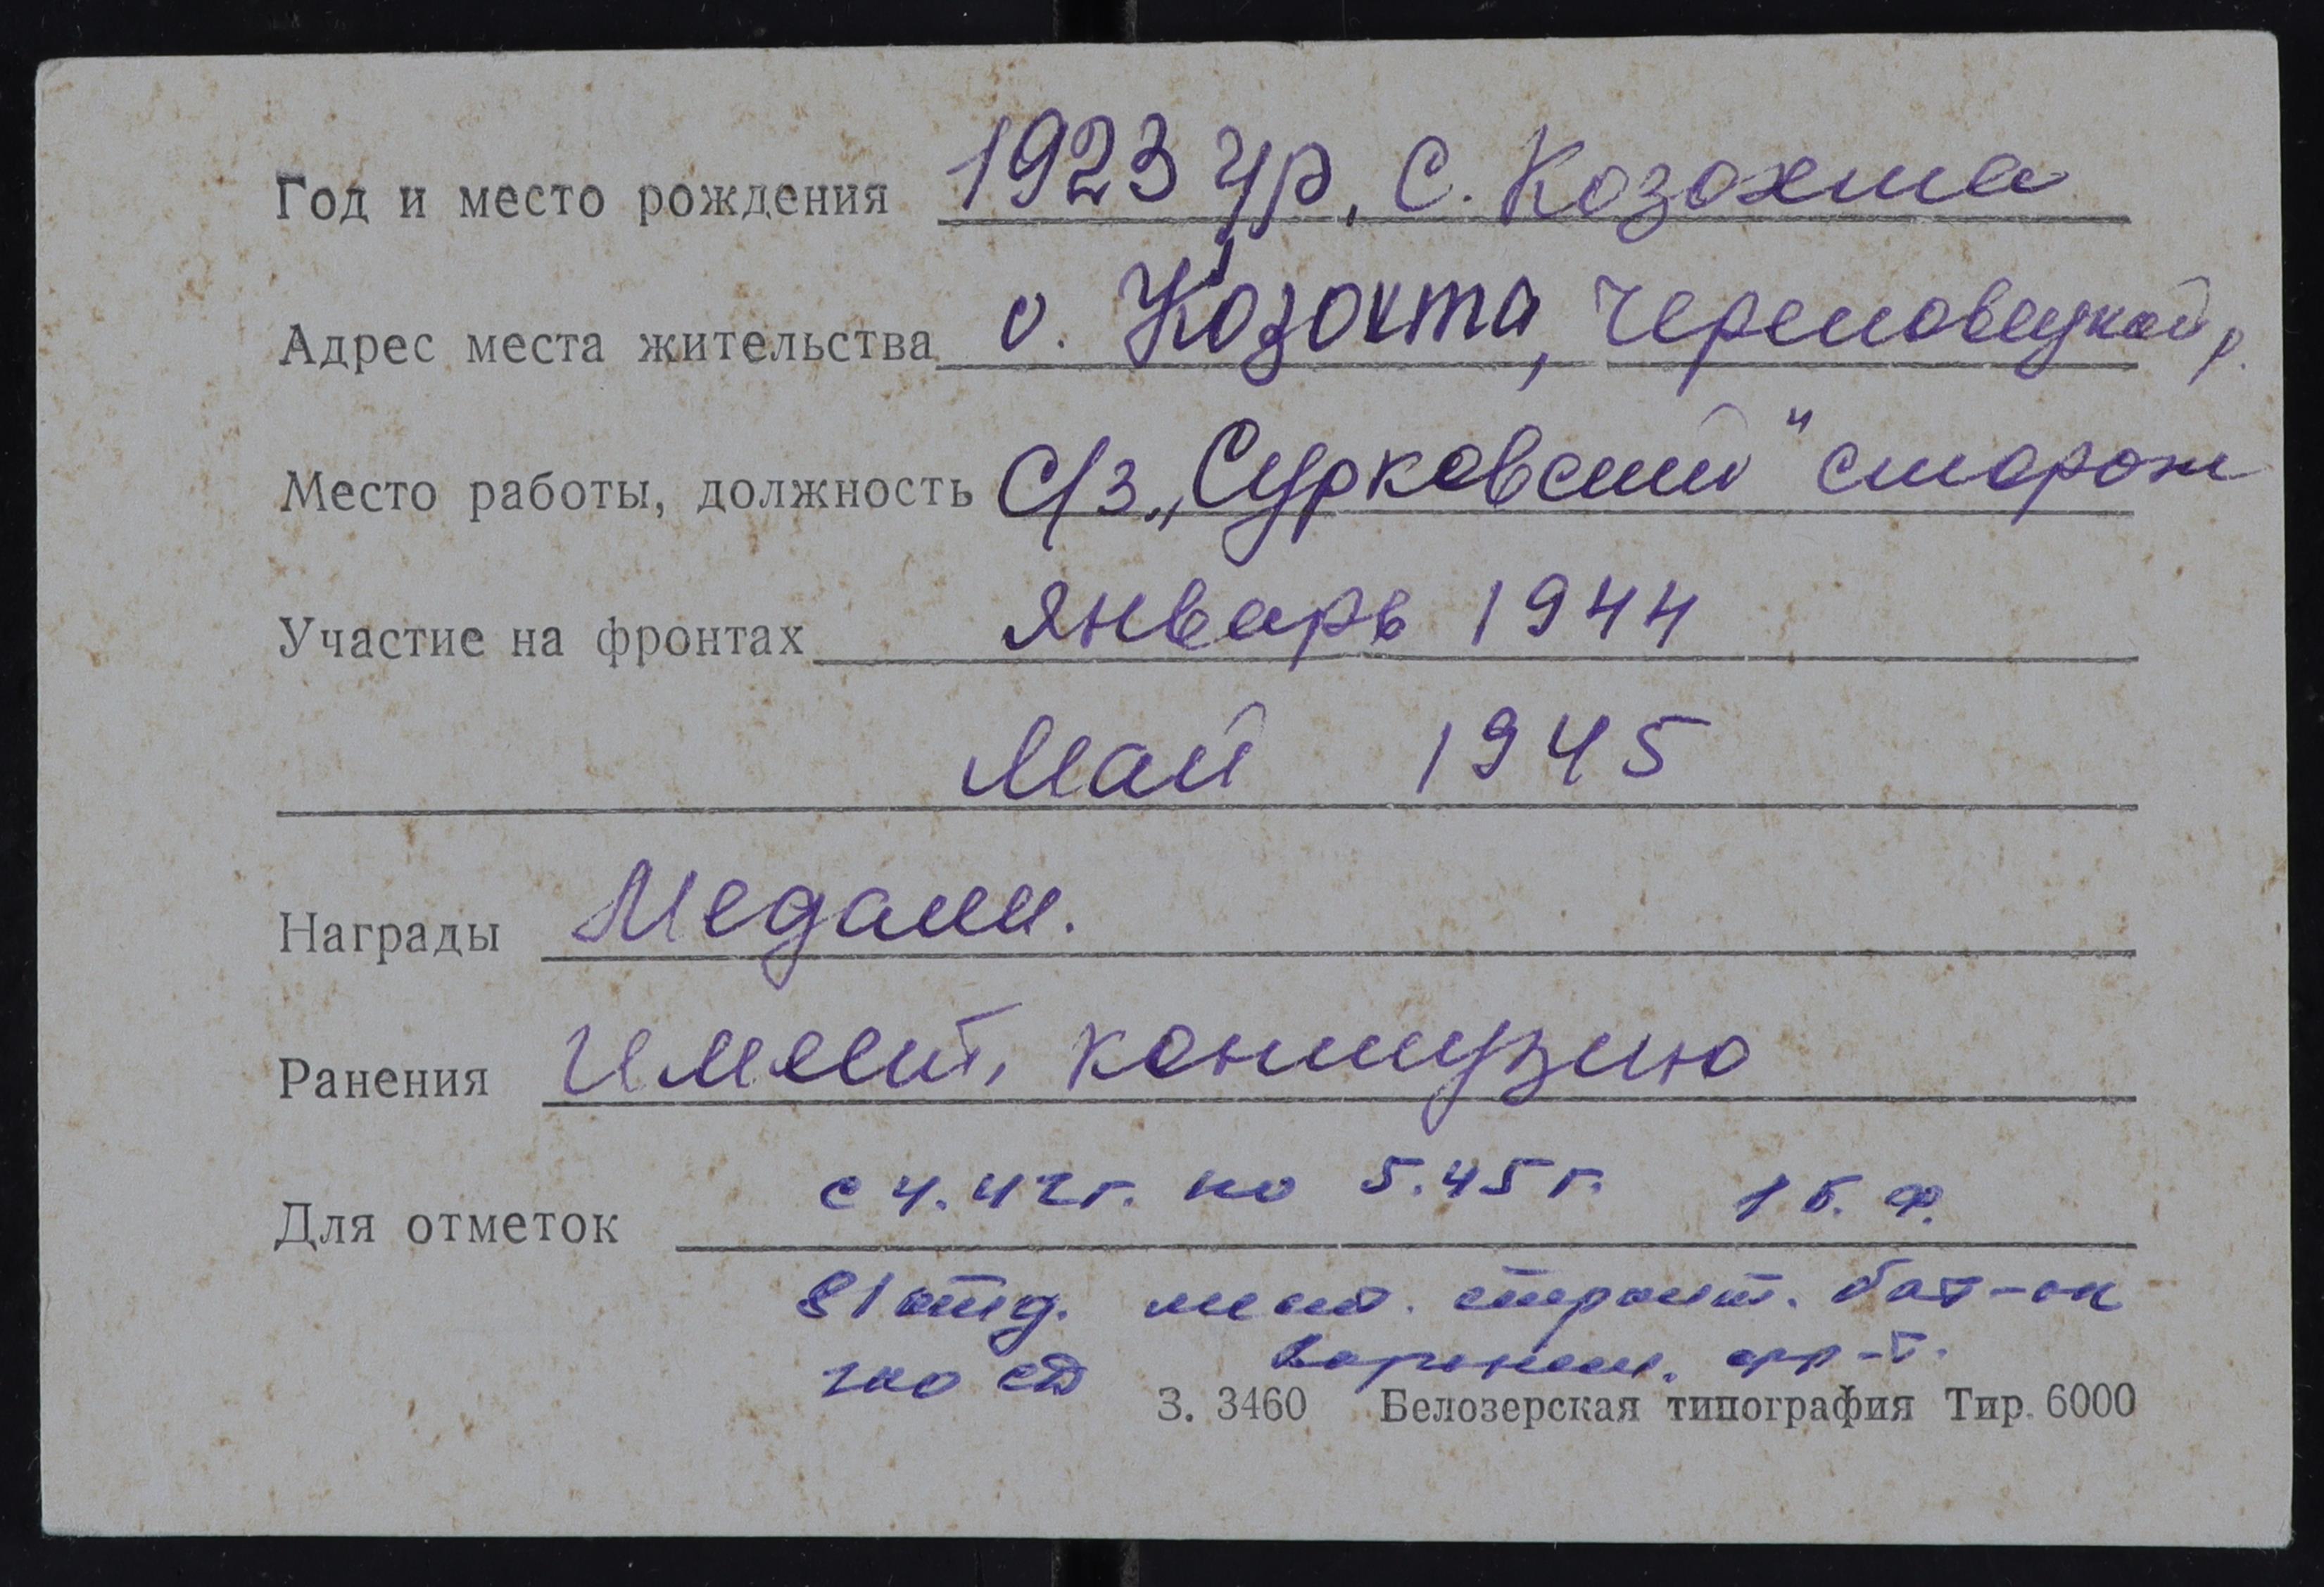 Год и место рождения 1923 ур. с. Козохта
Адрес места жительства с. Козохта, Череповецкой р.
Место работы, должность С/з „Сурковский" сторож
Участие на фронтах январь 1944
май 1945
Награды Медали.
Ранения Имеет, контузию
Для отметок с 4.42г. по 5.45г. 1 Б. Ф.
81 отд. строит. бат-он
сд Воронеж. фр-т.
З. 3460 Белозерская типография Тир. 6000